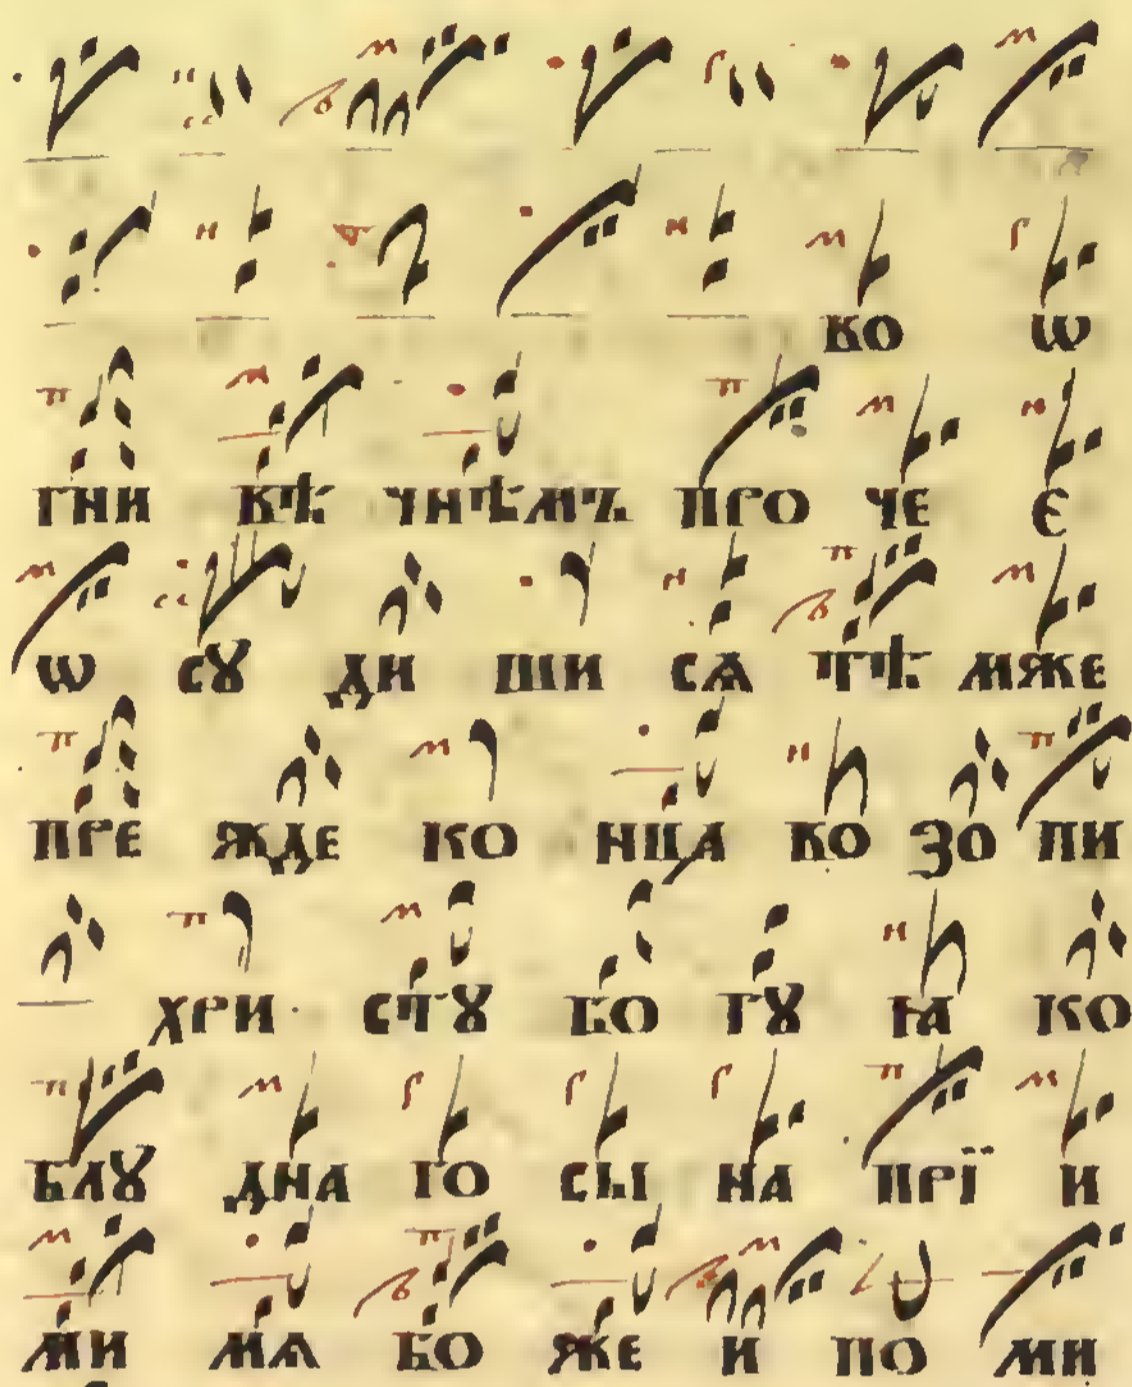 во ѡ
гни вѣ чнѣмъ про че є
ѡ сꙋ ди ши сѧ тѣ мже
пре жде ко нца во зо пи
хри стꙋ бо гꙋ ꙗ ко
блꙋ дна го сы на прї и
ми мѧ бо же и по ми